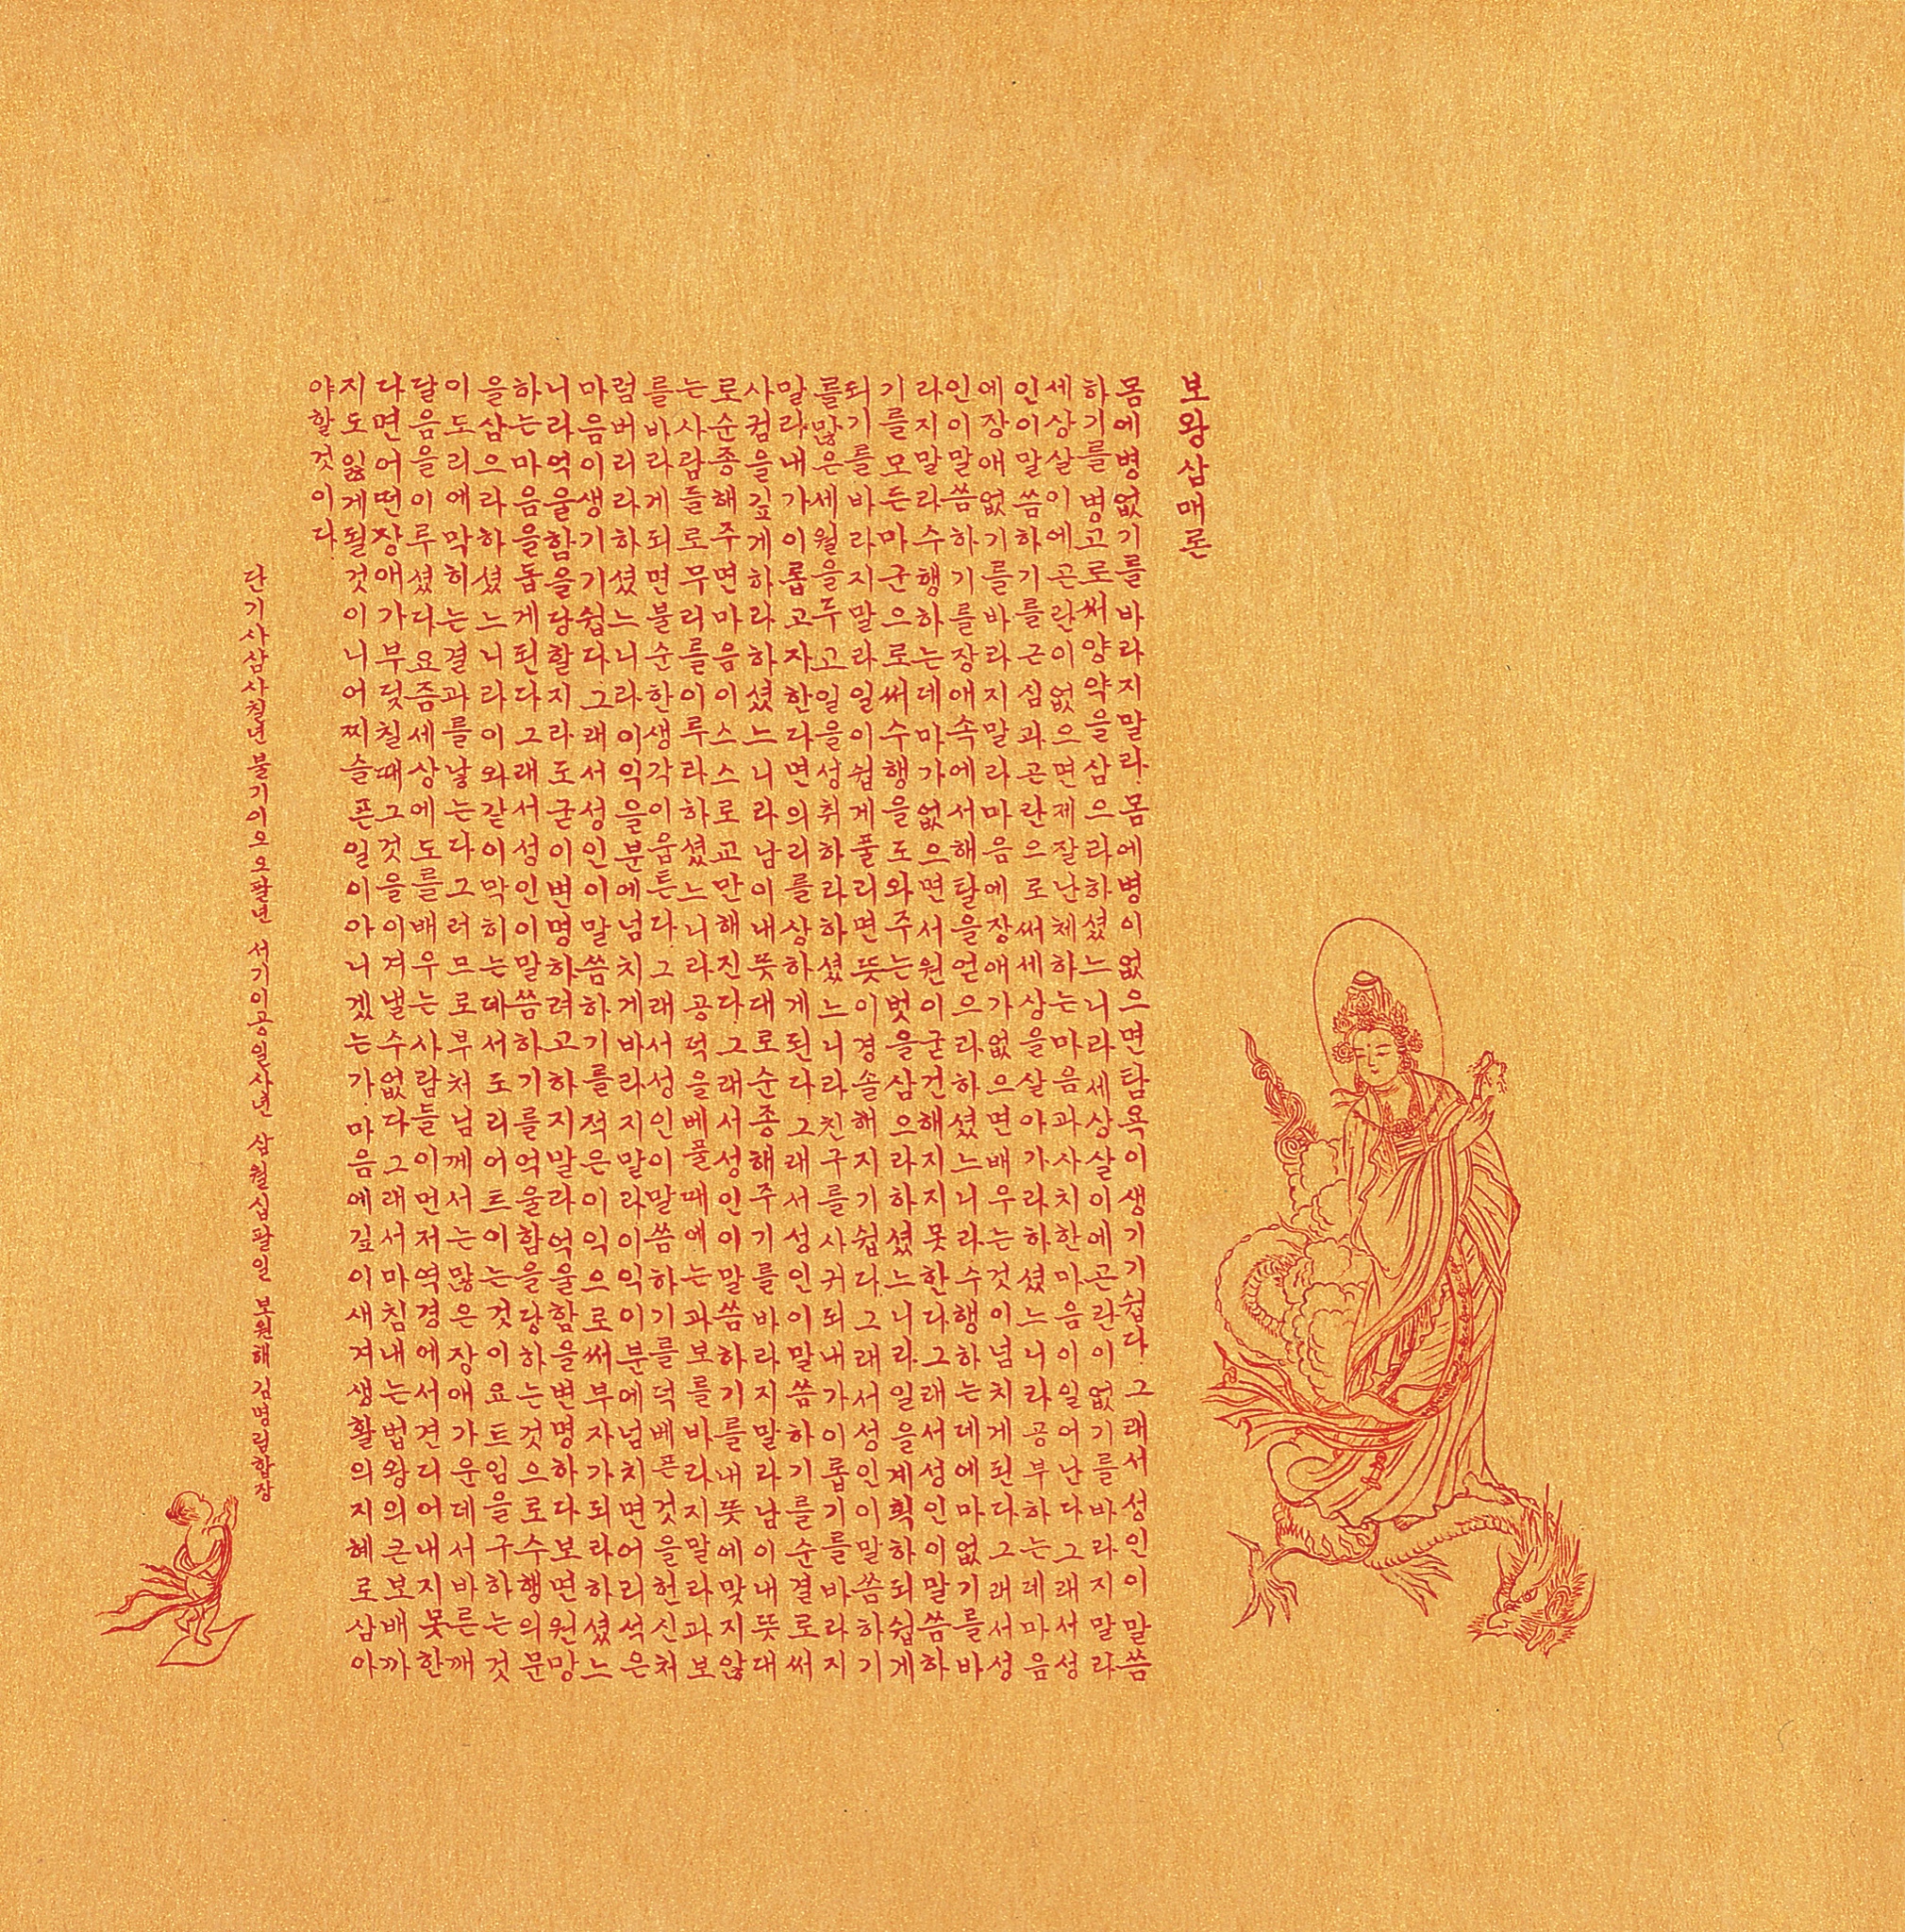 보왕삼매론
몸에병없기를바라지말라.몸에병이없으면탐욕이생기기쉽다.그래서성인이말씀
하기를병고로써양약을삼으라하셨느니라세상살이에곤란이없기를바라지말라
세상살이에곤란이없으면제잘난체하는마음과사치한마음이일어난다그래서성
인이말씀하기를근심과곤란으로써세상을살아가라하셨느니라공부하는데마음
에장애없기를바라지말라마음에장애가없으면배우는것이넘치게된다그래서성
인이말씀하기를장애속에서해탈을얻으라하셨느니라수행하는데에마없기를바
라지말라수행하는데마가없으면서원이굳건해지지못한다그래서성인이말씀하
기를모든마군으로써수행을도와주는벗을삼으라하셨느니라일을계획하되쉽게
되기를바라지말라일이쉽게풀리면뜻이경솔해지기쉽다그래서성인이말씀하기
를많은세월을두고일을성취하라하셨느니라친구를사귀되내가이롭기를바라지
말라내가이롭고자한다면의리를상하게된다그래서성인이말씀하기를순결로써
사귐을깊게하라하셨느니라남이내뜻대로순종해주기를바라지말라남이내뜻대
로순종해주면마음이스스로교만해진다.그래서성인이말씀하기를내뜻에맞지않
는사람들로무리를이루라하셨느니라공덕을베풀때에는과보를바라지말라과보
를바라게되면불순한생각이움튼다.그래서성인이말씀하기를덕베픈것을헌신처
럼버리라하셨느니라이익을분에넘치게바라지말라이익이분에넘치면어리석은
마음이생기기쉽다.그래서성인이말씀하기를적은이익으로써부자가되라하셨느
니라억울함을당할지라도굳이변명하려고하지말라억울함을변명하다보면원망
하는마음을돕게된다그래서성인이말씀하기를억울함을당하는것으로수행의문
을삼으라하셨느니라이와같이막히는데서도리어트이는것이요트임을구하는것
이도리에막히는결과를낳는다그러므로부처님께서는많은장애가운데서바른깨
달음을이루셨다요즘세상에도를배우는사람들이먼저역경에서견디어내지못한
다면어떤장애가부딪칠때그것을이겨낼수없다그래서마침내는법왕의큰보배까
지도잃게될것이니어찌슬픈일이아니겠는가.마음에깊이새겨생활의지혜로삼아
야할것이다.
단기사삼사칠년 불기이오오팔년 서기이공일사년 삼월십팔일 보원해 김명림합장